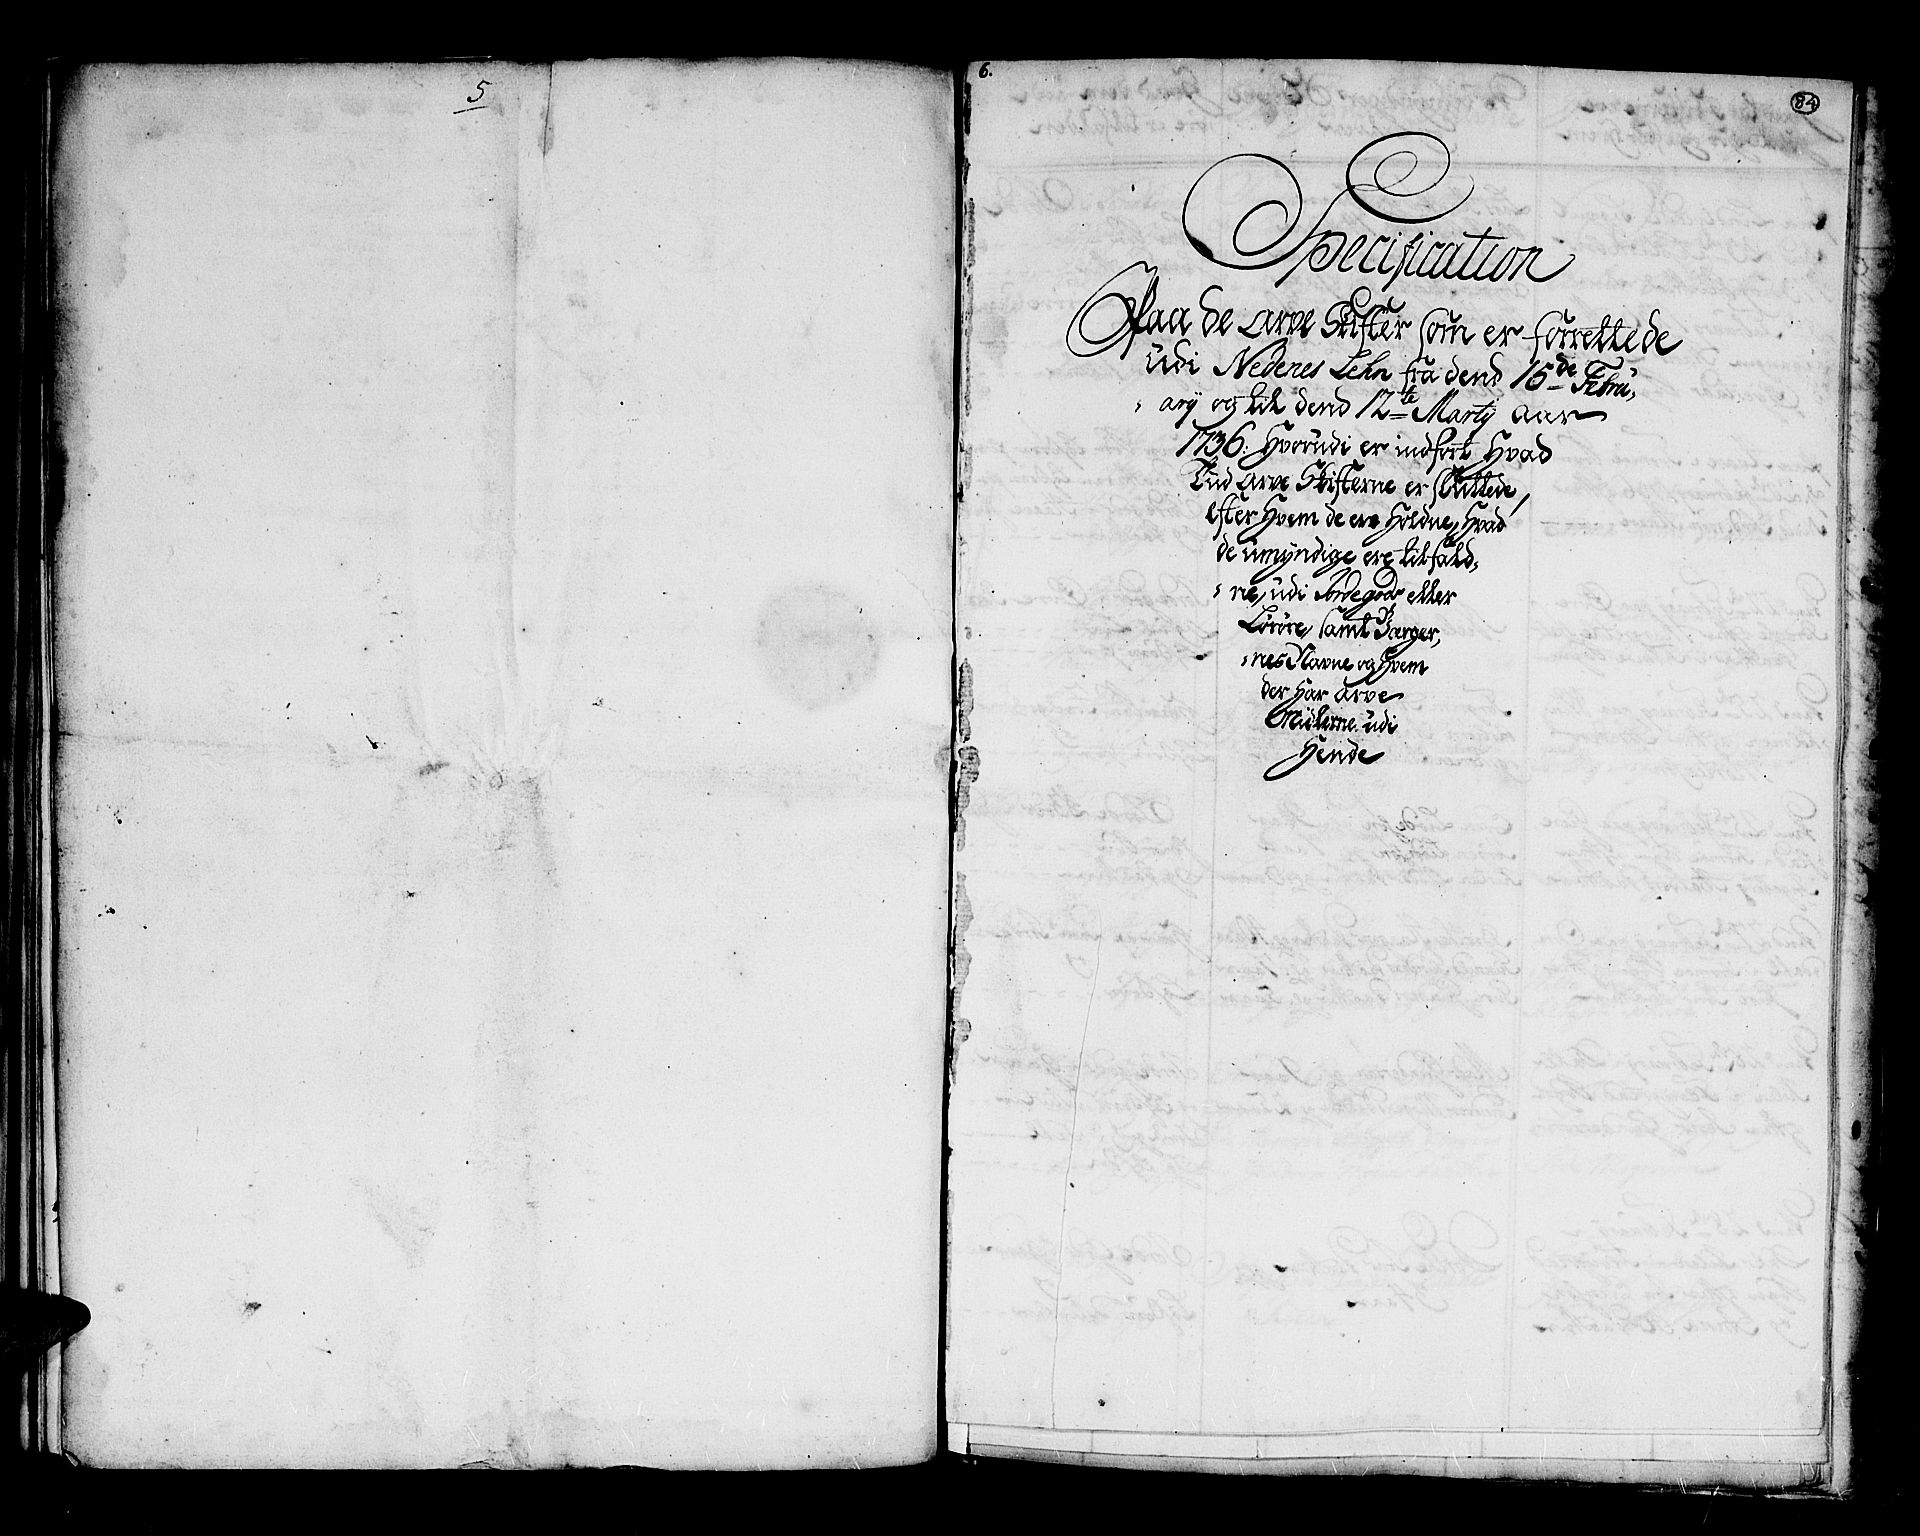 5
6.
84
Specification
Paa de arve Skifter som er forrettede
udi Nedenes Lehn fra dend 15de Febru,
, arÿ og til dend 12te Martÿ aar
1736. Hvorudi er indført Hvad
Tid arve Skifterne er sluttede,
efter Hvem de ere Holdne, Hvad
de umÿndige ere tilfald,
, ne, udi Jordegods eller
Løsøre, samt Værger,
, nes Navne og Hvem
der Har arve
Midlerne udi
Hende